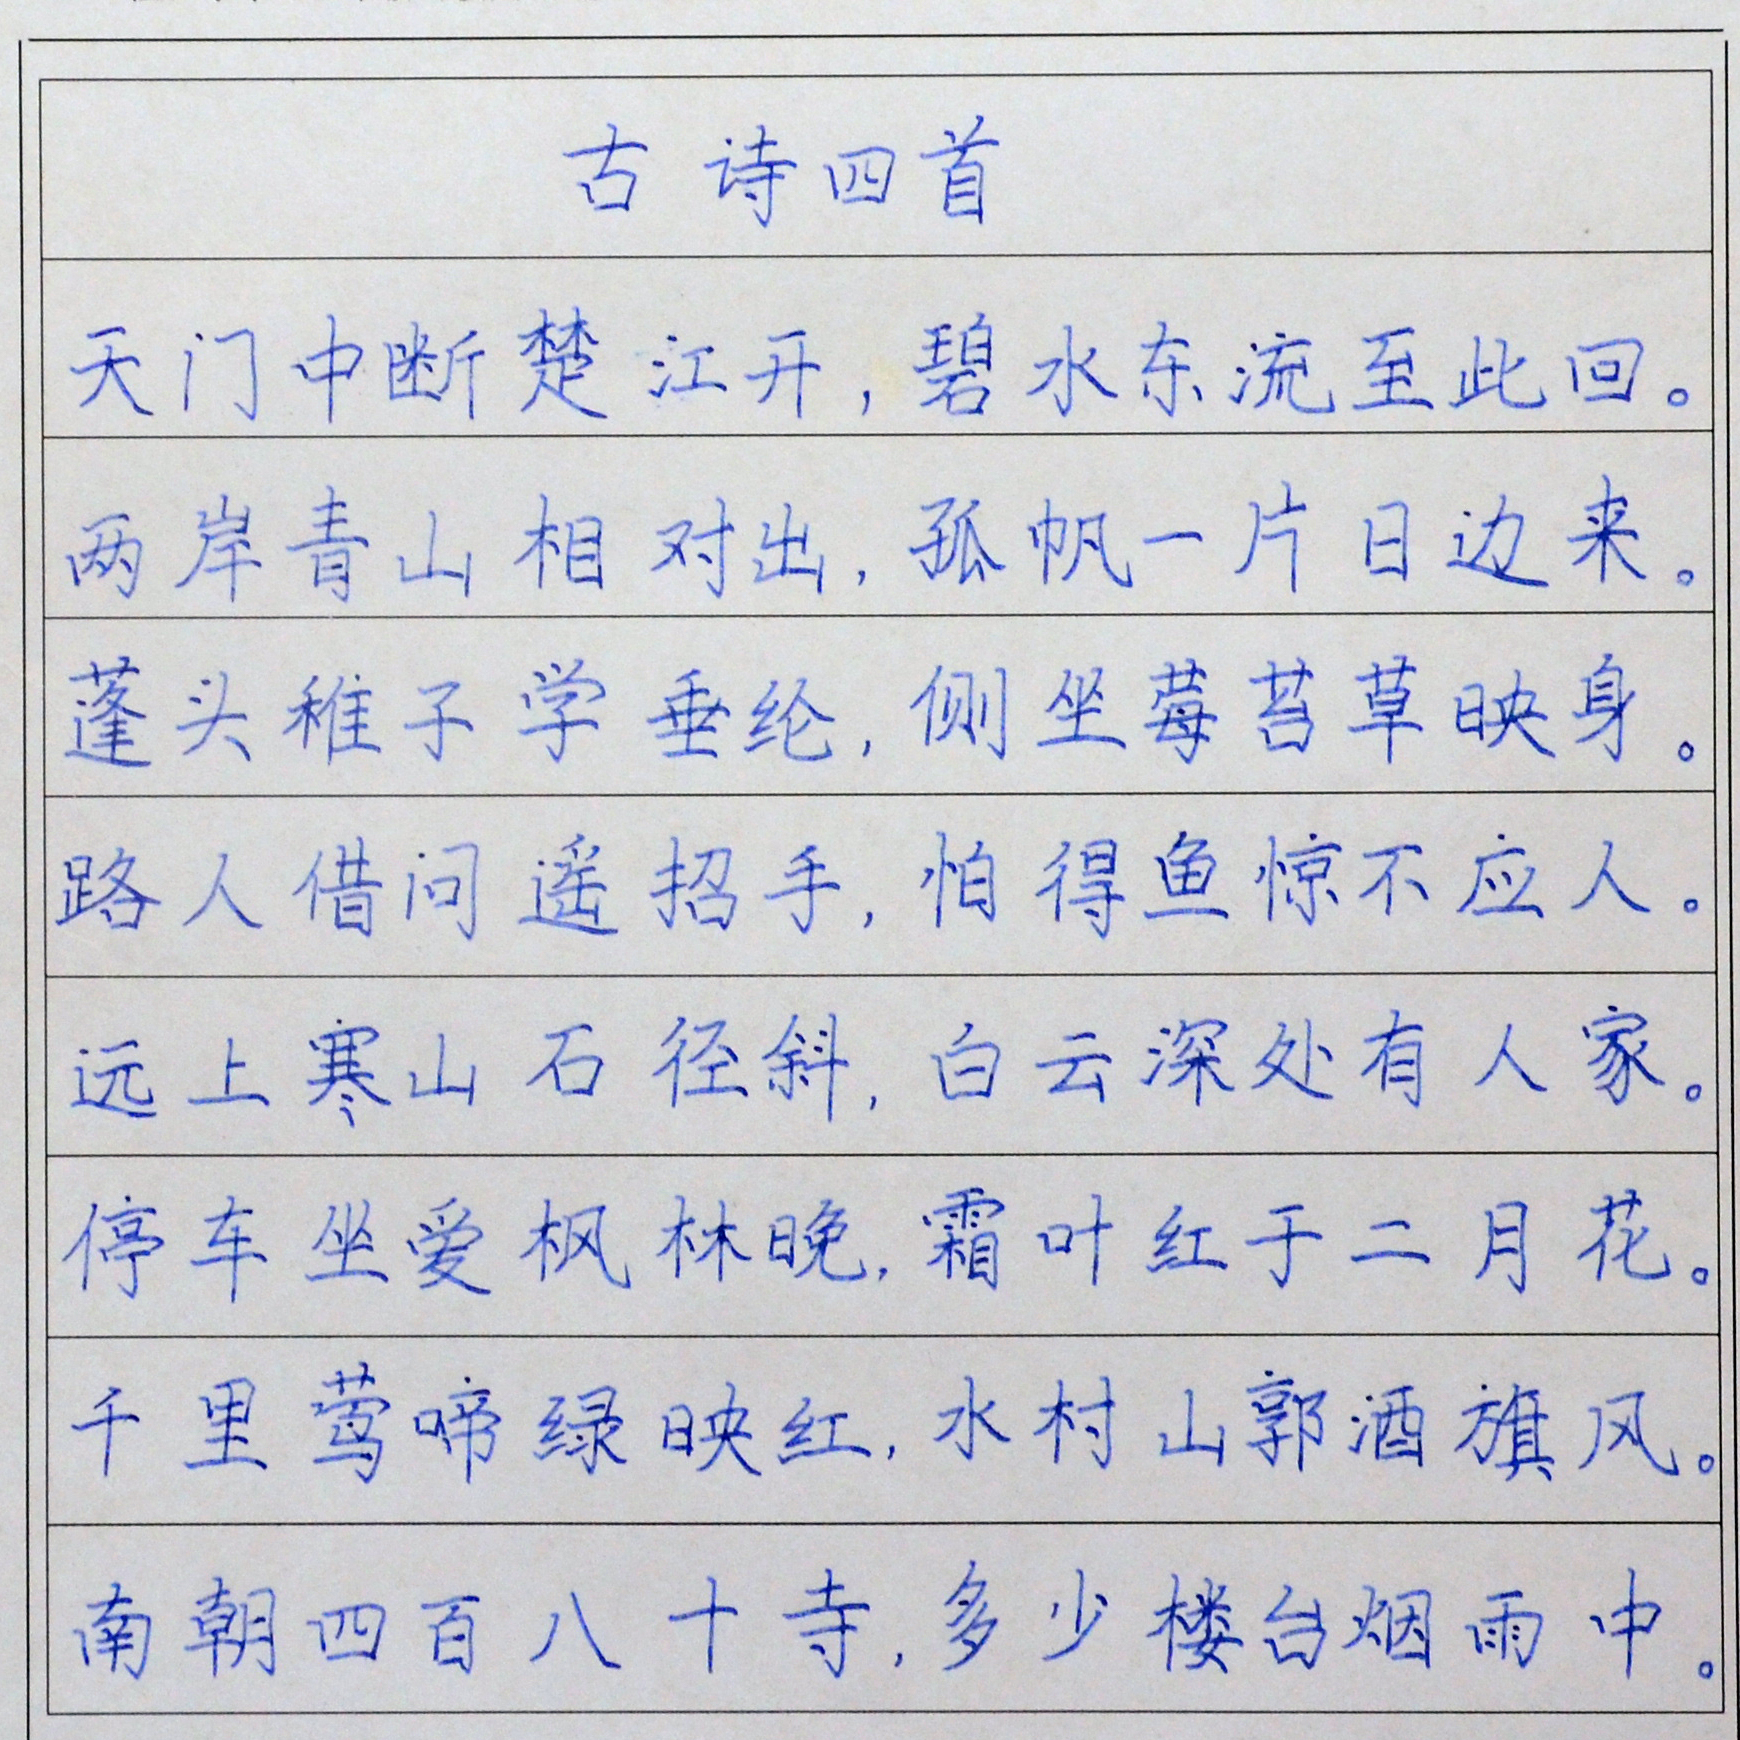 古诗四首
天门中断楚江开，碧水东流至此回。
两岸青山相对出，孤帆一片日边来。
蓬头稚子学垂纶，侧坐莓苔草映身。
路人借问遥招手，怕得鱼惊不应人。
远上寒山石径斜，白云深处有人家。
停车坐爱枫林晚，霜叶红于二月花。
千里莺啼绿映红，水村山郭酒旗风。
南朝四百八十寺，多少楼台烟雨中。